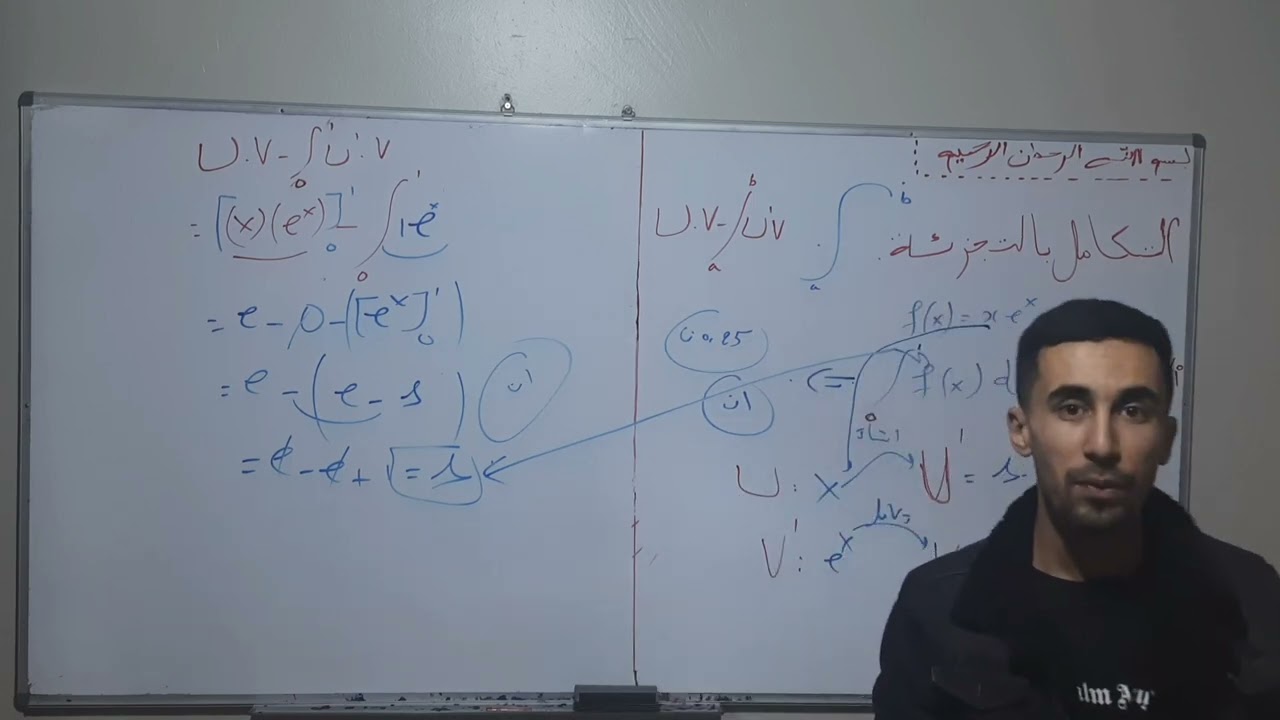 بسم الله الرحمان الرحيم
التكامل بالتجزئة
∫ₐᵇ
U.V-∫ₐᵇU'V
f(x) = x e^x
0,25ن
1ن
<= ∫₀¹ f(x) d
U : x U' = 1
V' : e^x
U.V-∫₀¹U'.V
= [(x)(e^x)]₀¹ - ∫₀¹ 1·e^x
= e - 0 - ([e^x]₀¹)
= e - (e - 1) 1ن
= e - e + 1 = 1
alm An